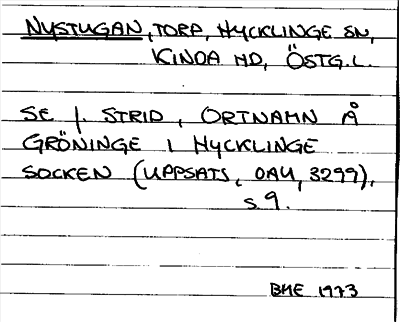 NYSTUGAN, TORP, HYCKLINGE SN,
KINDA HD, ÖSTG.L.
SE J. STRID, ORTNAMN Å
GRÖNINGE I HYCKLINGE
SOCKEN (UPPSATS, OAU, 3299),
s 9.
BHE 1973